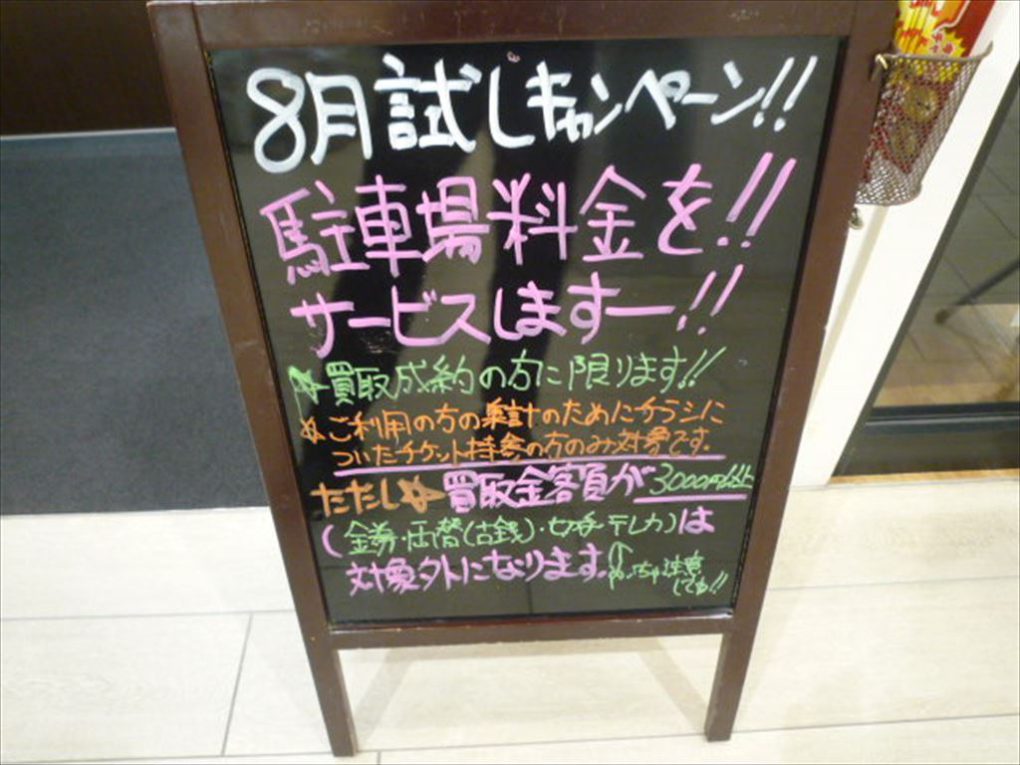 8月試しキャンペーン!!
駐車場料金を!!
サービスしますー!!
☆買取成約の方に限ります!!
☆ご利用の方の集計のためにチラシに
ついたチケット持参の方のみ対象です。
ただし☆買取金額が3000円以上
(金券・両替(古銭)・切手・テレカ)は
対象外になります。
↑めっちゃ注意
してね!!